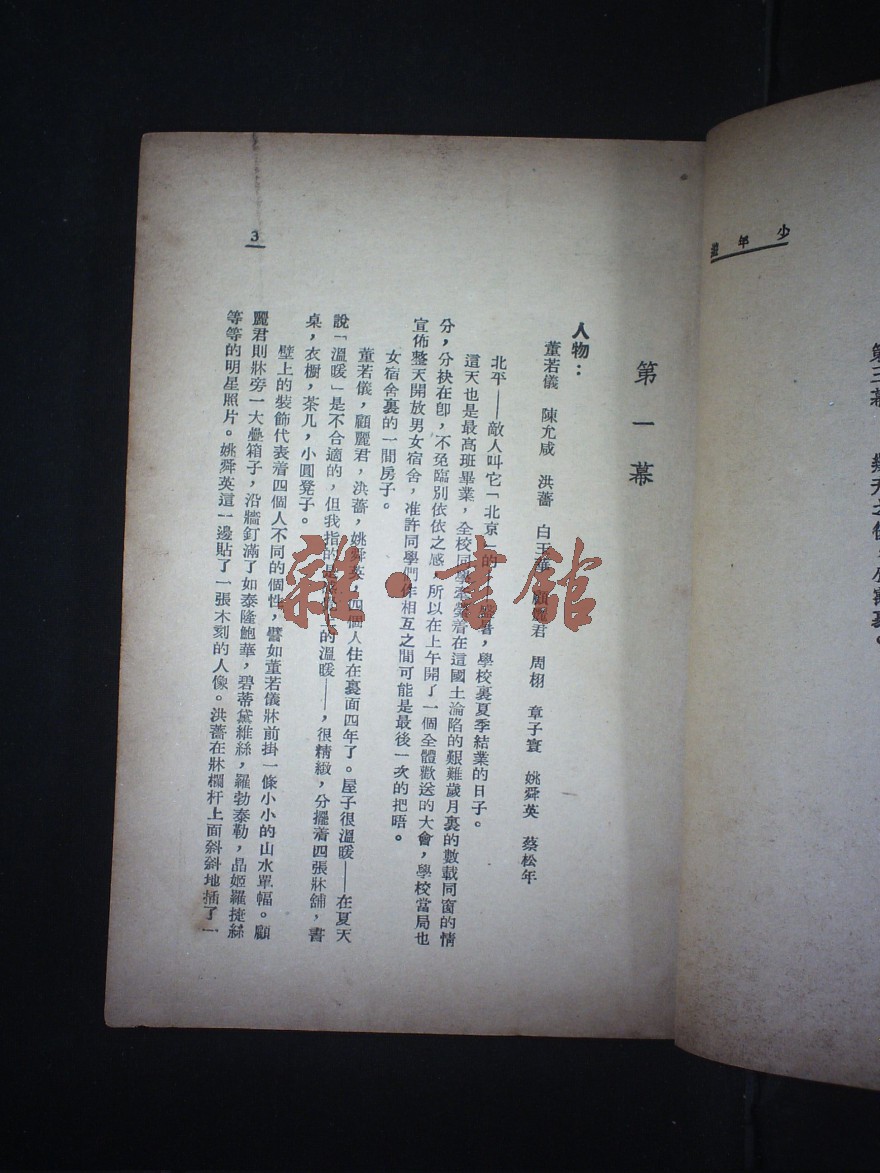 少年遊
第三幕 幾天之後，小寓裏。
第一幕
人物：
董若儀 陳允咸 洪薔 白玉華 顧麗君 周栩 章子寰 姚舜英 蔡松年
北平——敵人叫它「北京」的 盛暑，學校裏夏季結業的日子。
這天也是最高班畢業，全校同學 着在這國土淪陷的艱難歲月裏的數載同窗的情
分，分抉在卽，不免臨別依依之感 所以在上午開了一個全體歡送的大會，學校當局也
宣佈整天開放男女宿舍，准許同學們作相互之間可能是最後一次的把唔。
女宿舍裏的一間房子。
董若儀，顧麗君，洪薔，姚舜英，四個人住在裏面四年了。屋子很溫暖——在夏天
說「溫暖」是不合適的，但我指的是 的溫暖——，很精緻，分擺着四張牀舖，書
桌，衣櫥，茶几，小圓凳子。
壁上的裝飾代表着四個人不同的個性，譬如董若儀牀前掛一條小小的山水單幅。顧
麗君則牀旁一大疊箱子，沿牆釘滿了如泰隆鮑華，碧蒂黛維絲，羅勃泰勒，晶姬羅捷絲
等等的明星照片。姚舜英這一邊貼了一張木刻的人像。洪薔在牀欄杆上面斜斜地插了一
3
雜·書館